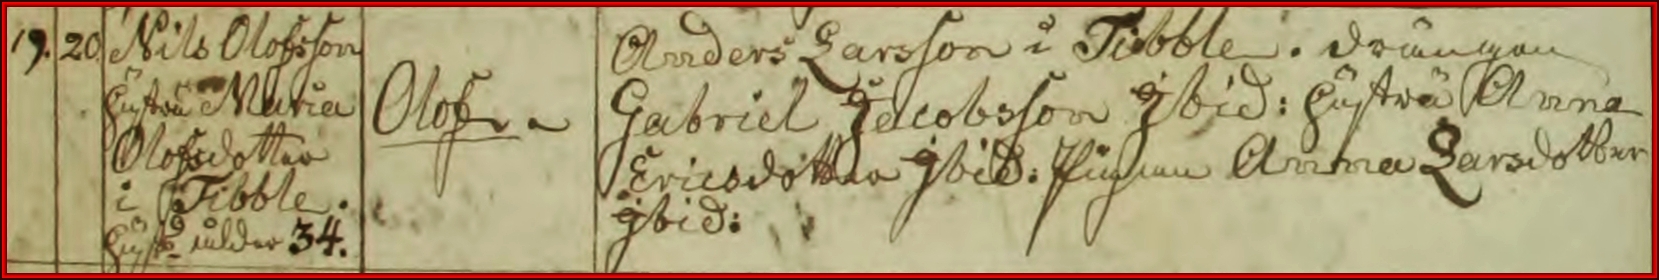 19. 20. Nils Olofsson
hustru Maria
Olofsdotter
i Tibble.
hust: ålder 34.
Olof
Anders Larsson i Tibble. drängen
Gabriel Jacobsson ibid: hustru Anna
Ericsdotter ibid: Pigan Anna Larsdotter
ibid: